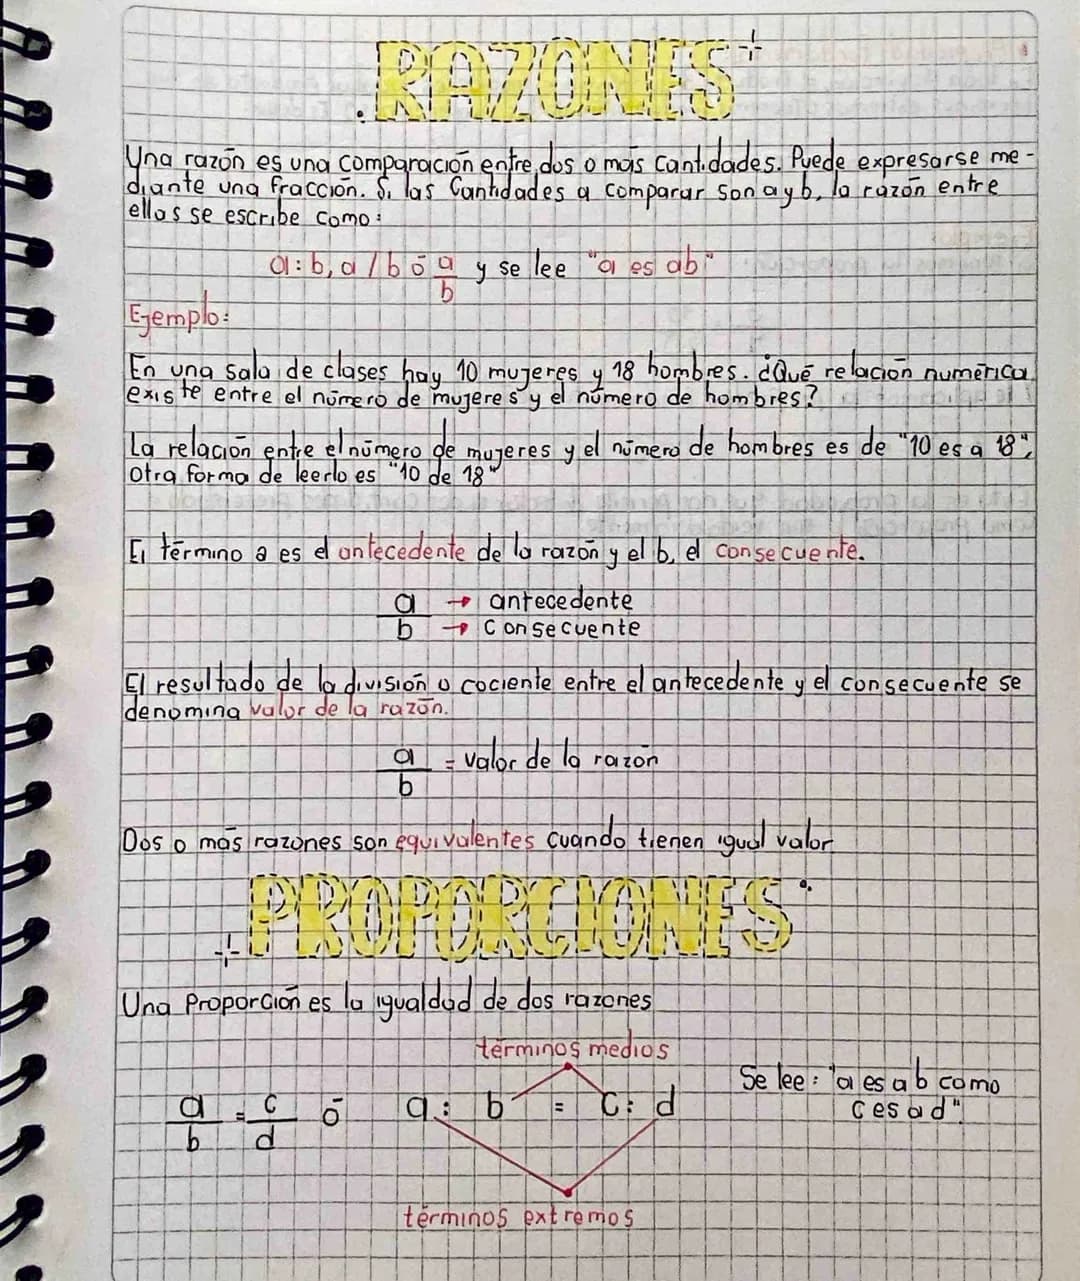 RAZONES
Una razón es una comparación entre dos o más cantidades. Puede expresarse me-
diante una fracción. Si las cantidades a comparar son a y b, la razón entre
ellas se escribe como:
a:b, a/b ó a/b y se lee "a es a b"
Ejemplo:
En una sala de clases hay 10 mujeres y 18 hombres. ¿Qué relación numérica
existe entre el número de mujeres y el número de hombres?
La relación entre el número de mujeres y el número de hombres es de "10 es a 18",
otra forma de leerlo es "10 de 18"
El término a es el antecedente de la razón y el b, el consecuente.
a → antecedente
b → consecuente
El resultado de la división o cociente entre el antecedente y el consecuente se
denomina valor de la razón.
a/b = valor de la razón
Dos o más razones son equivalentes cuando tienen igual valor
PROPORCIONES
Una Proporción es la igualdad de dos razones
términos medios
a/b = c/d ó a: b = c: d
Se lee: "a es a b como
c es a d"
términos extremos